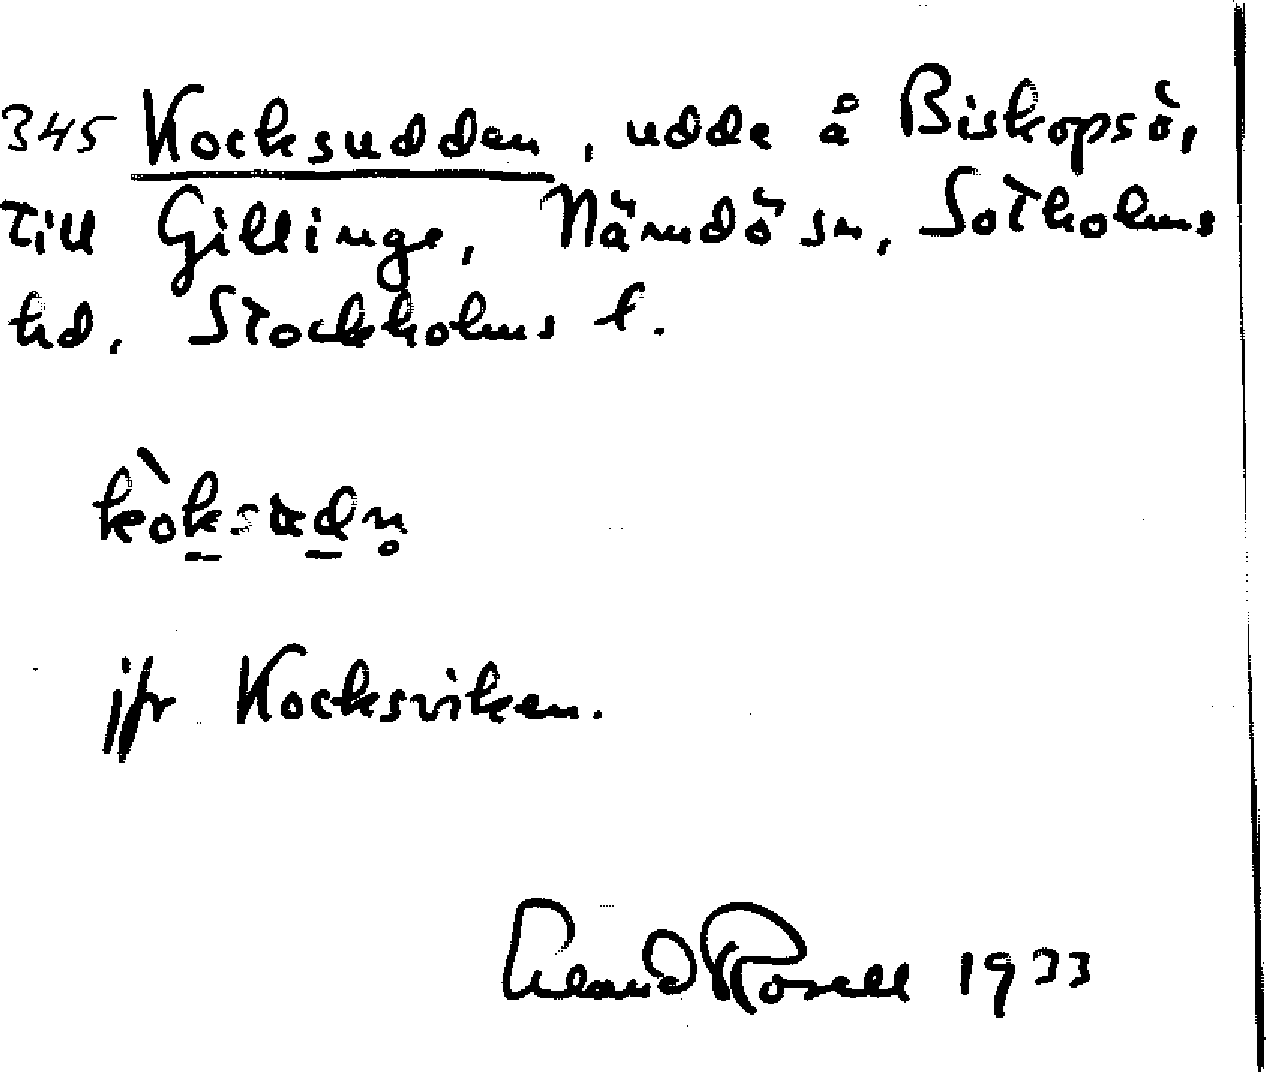 345 Kocksudden, udde å Biskopsö,
till Gillinge, Nämdö sn, Sotholms
hd, Stockholms l.
kòksudn̥
jfr Kocksviken.
Rosell 1933